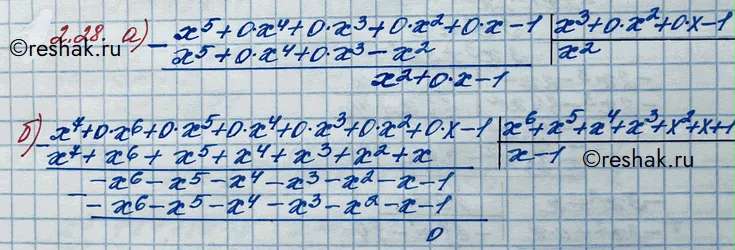 2.28. а) - x⁵+0·x⁴+0·x³+0·x²+0·x-1 | x³+0·x²+0·x-1
x⁵+0·x⁴+0·x³-x² | x²
x²+0·x-1
б) - x⁷+0·x⁶+0·x⁵+0·x⁴+0·x³+0·x²+0·x-1 | x⁶+x⁵+x⁴+x³+x²+x+1
x⁷+x⁶+x⁵+x⁴+x³+x²+x | x-1
- -x⁶-x⁵-x⁴-x³-x²-x-1
-x⁶-x⁵-x⁴-x³-x²-x-1
0
reshak.ru